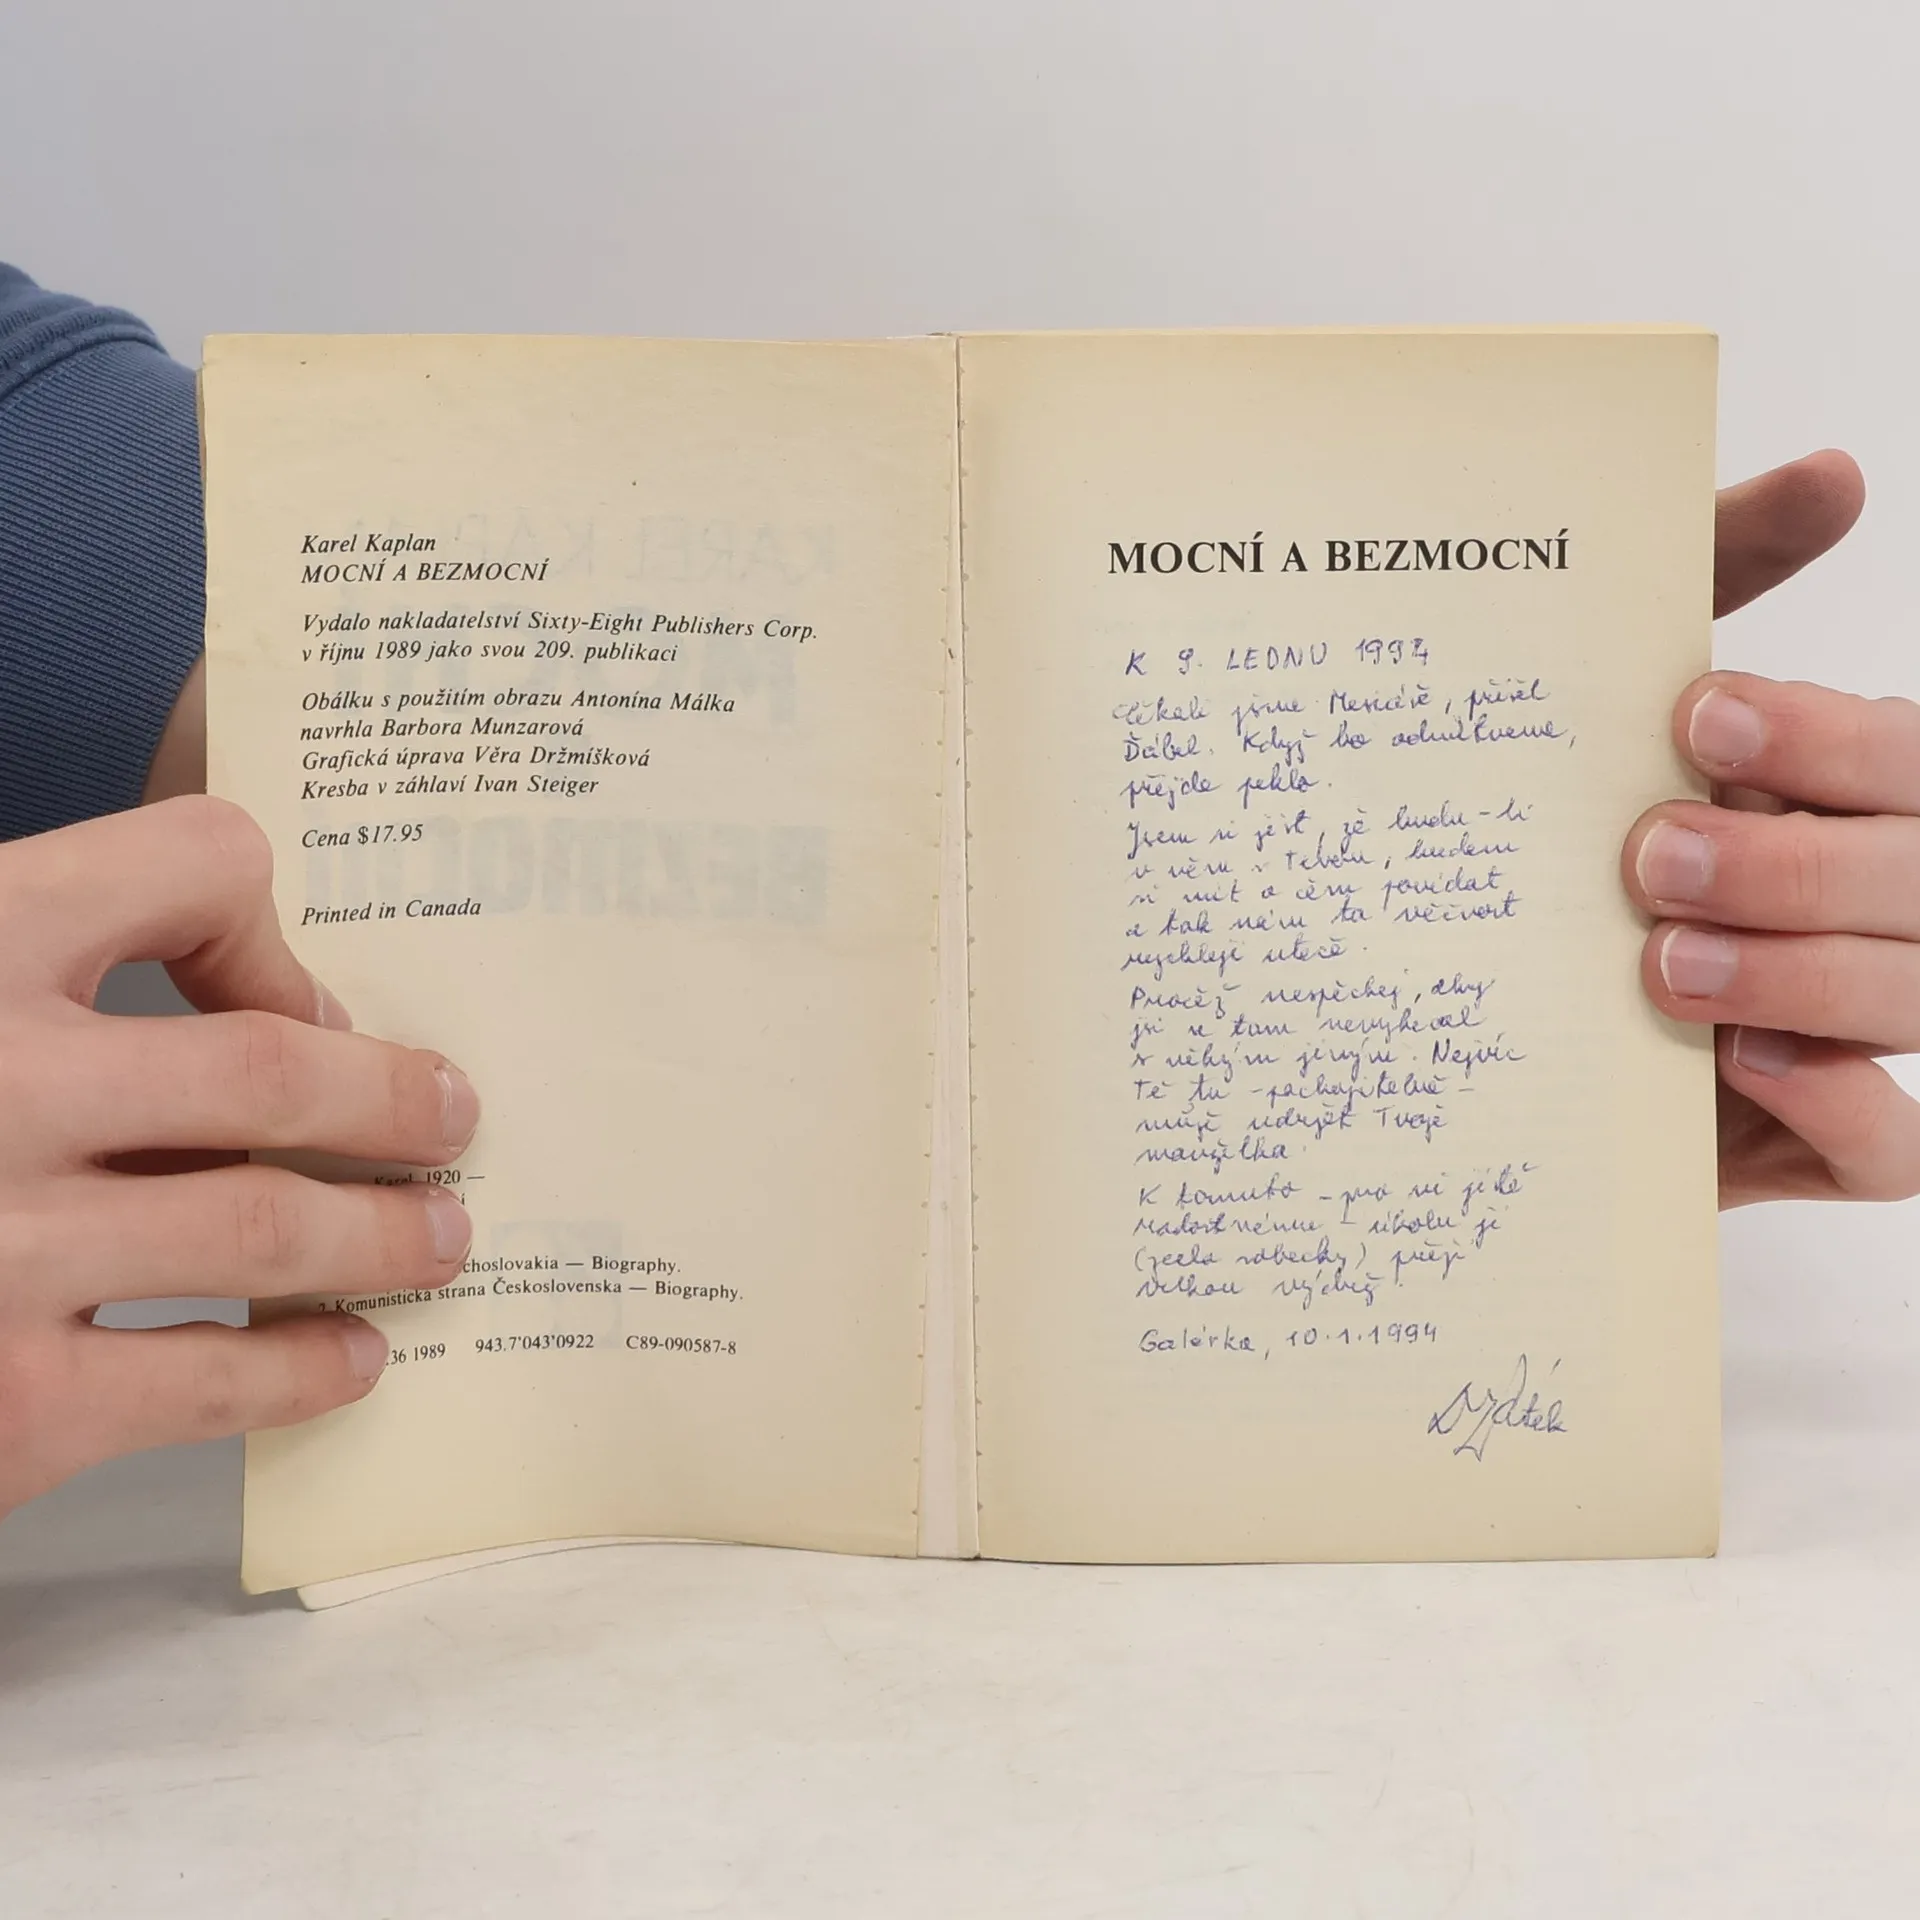 Karel Kaplan
MOCNÍ A BEZMOCNÍ
Vydalo nakladatelství Sixty-Eight Publishers Corp.
v říjnu 1989 jako svou 209. publikaci
Obálku s použitím obrazu Antonína Málka
navrhla Barbora Munzarová
Grafická úprava Věra Držmíšková
Kresba v záhlaví Ivan Steiger
Cena $17.95
Printed in Canada
Karel, 1920 —
choslovakia — Biography.
2. Komunistická strana Československa — Biography.
36 1989 943.7'043'0922 C89-090587-8
MOCNÍ A BEZMOCNÍ
K 9. LEDNU 1994
čekali jsme Mesiáše, přišel
Ďábel. Když ho odmítneme,
přijde peklo.
Jsem si jist, že budu-li
v něm s Tebou, budem
si mít o čem povídat
a tak nám ta věčnost
rychleji uteče.
Pročež nespěchej, aby
jsi se tam nevykecal
s někým jiným. Nejvíc
Tě tu -pochopitelně-
může udržet Tvoje
manželka.
K tomuto - pro ni jistě
radostnému - úkolu jí
(zcela sobecky) přeji
velkou výdrž.
Galérka, 10.1.1994